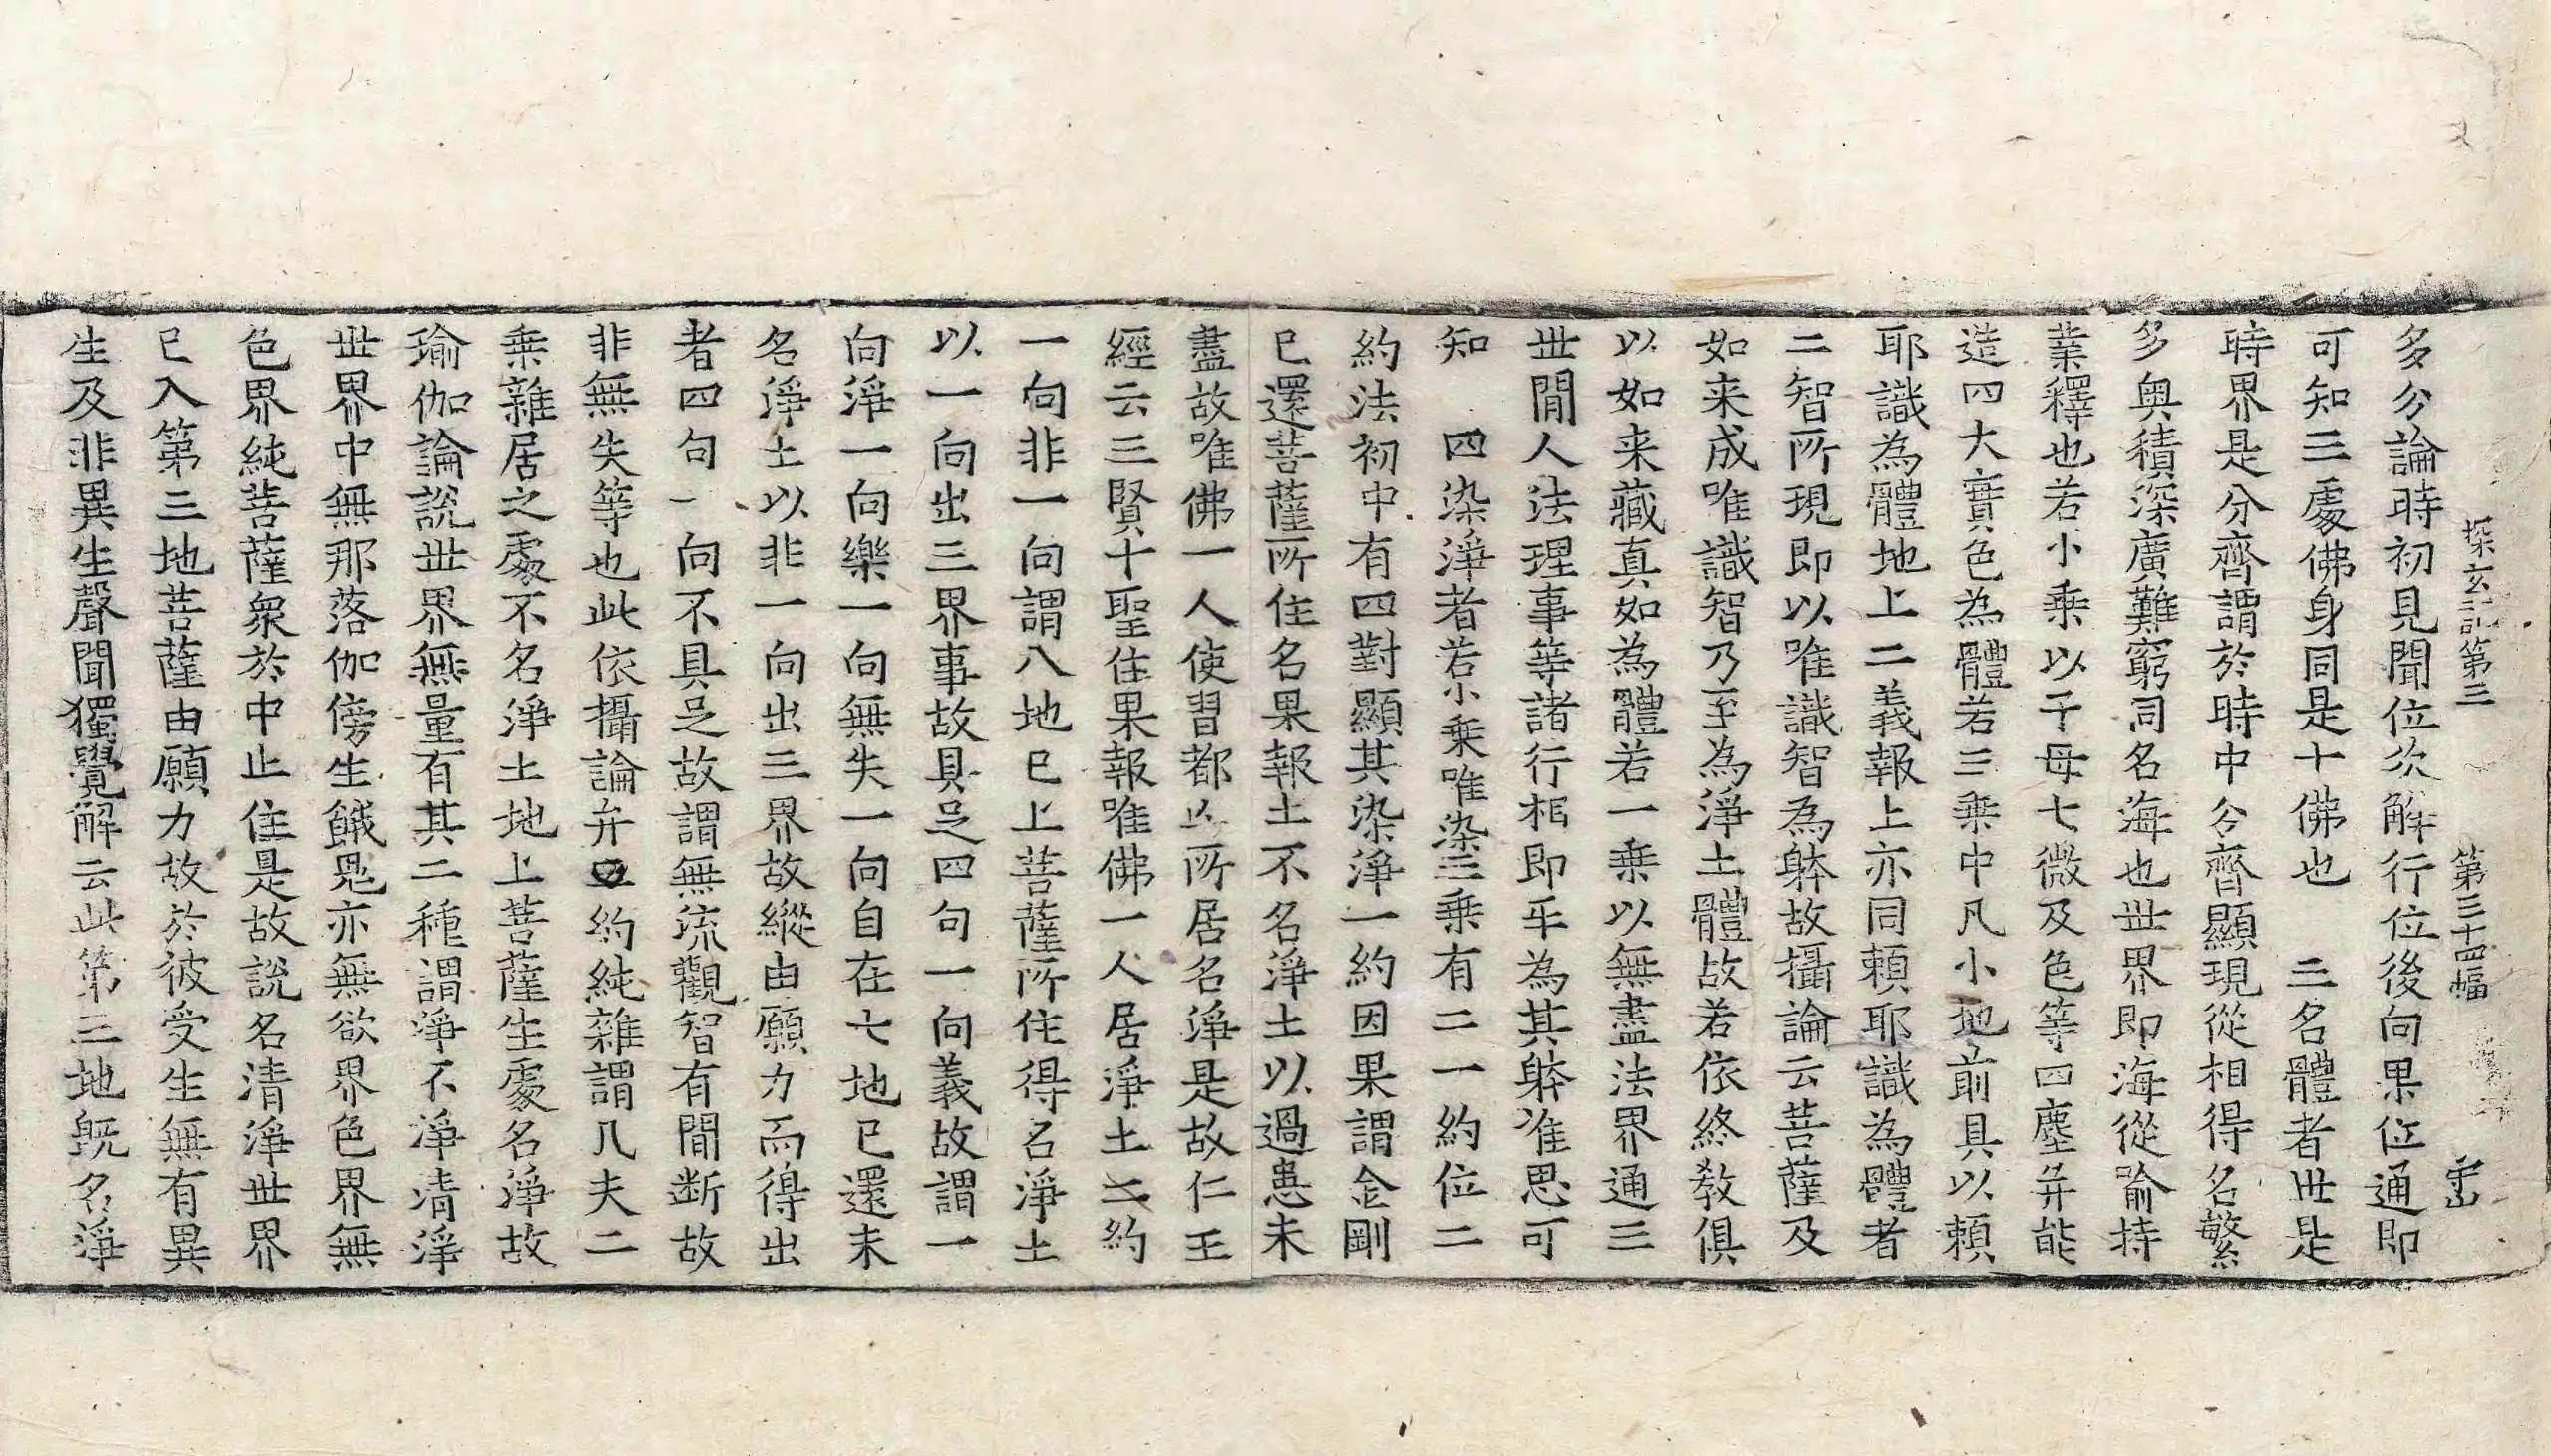 探玄記第三 第三十四幅 宙
多分論時初見聞位次解行位後向果位通即
可知三處佛身同是十佛也 三名體者世是
時界是分齊謂於時中分齊顯現從相得名繁
多奧積深廣難窮同名海也世界即海從喻持
業釋也若小乘以子母七微及色等四塵并能
造四大實色為體若三乘中凡小地前具以頼
耶識為體地上二義報上亦同頼耶識為體者
二智所現即以唯識智為躰故攝論云菩薩及
如来成唯識智乃至為淨土體故若依終教俱
以如来藏真如為體若一乘以無盡法界通三
世間人法理事等諸行相即平為其躰准思可
知 四染淨者若小乘唯染三乘有二一約位二
約法初中有四對顯其染淨一約因果謂金剛
已還菩薩所住名果報土不名淨土以過患未
盡故唯佛一人使習都亡所居名淨是故仁王
經云三賢十聖住果報唯佛一人居淨土二約
一向非一向謂八地已上菩薩所住得名淨土
以一向出三界事故具足四句一向義故謂一
向淨一向樂一向無失一向自在七地已還未
名淨土以非一向出三界故縱由願力而得出
者四句一向不具足故謂無流觀智有間断故
非無失等也此依攝論并 約純雜謂凡夫二
乘雜居之處不名淨土地上菩薩生處名淨故
瑜伽論說世界無量有其二種謂淨不淨清淨
世界中無那落伽傍生餓鬼亦無欲界色界無
色界純菩薩衆於中止住是故說名清淨世界
已入第三地菩薩由願力故於彼受生無有異
生及非異生聲聞獨覺解云此第三地旣名淨